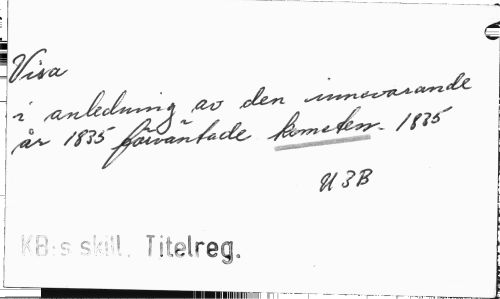 Visa
i anledning av den innevarande
år 1835 förväntade kometen. 1835
U 3B
KB:s skill. Titelreg.